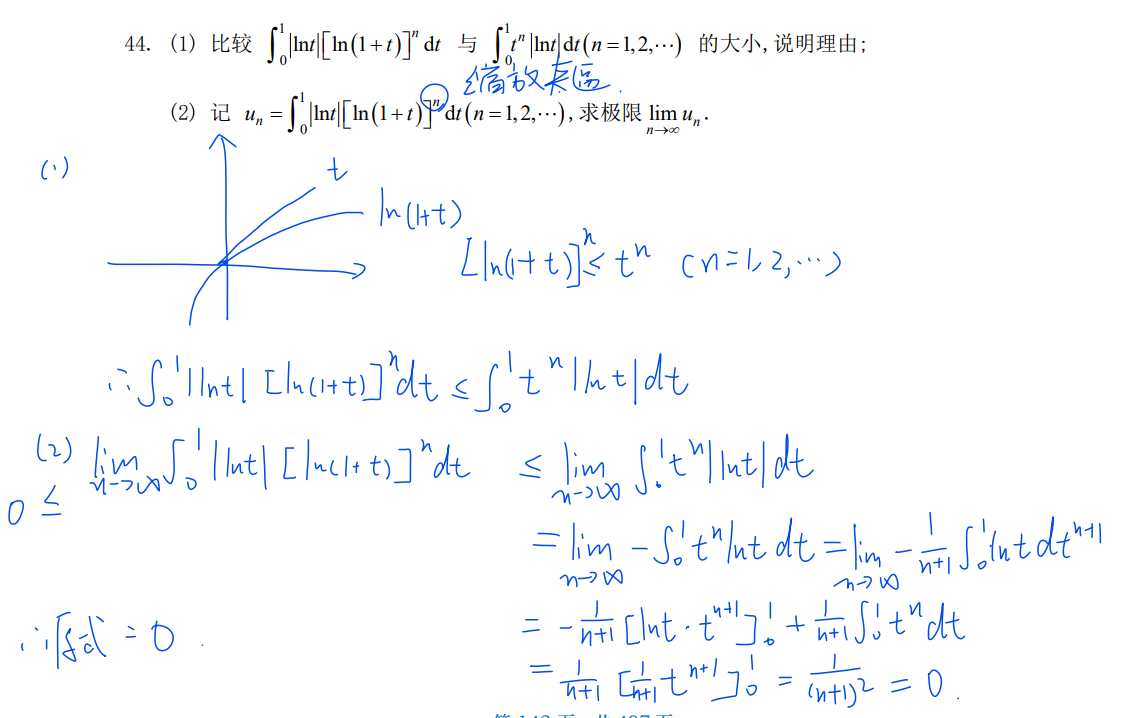 44. (1) 比较 ∫₀¹|lnt|[ln(1+t)]ⁿ dt 与 ∫₀¹tⁿ|lnt|dt(n=1,2,⋯) 的大小,说明理由;
缩放夹逼.
(2) 记 uₙ=∫₀¹|lnt|[ln(1+t)]ⁿdt(n=1,2,⋯),求极限 lim_{n→∞} uₙ.
(1)
t
ln(1+t)
[ln(1+t)]ⁿ≤tⁿ (n=1,2,⋯)
∴∫₀¹|lnt|[ln(1+t)]ⁿdt≤∫₀¹tⁿ|lnt|dt
(2) lim_{n→∞}∫₀¹|lnt|[ln(1+t)]ⁿdt ≤lim_{n→∞}∫₀¹tⁿ|lnt|dt
0≤
=lim_{n→∞}-∫₀¹tⁿlnt dt=lim_{n→∞}-\frac{1}{n+1}∫₀¹lntdtⁿ⁺¹
∴原式=0. =-\frac{1}{n+1}[lnt·tⁿ⁺¹]₀¹+\frac{1}{n+1}∫₀¹tⁿdt
=\frac{1}{n+1}[\frac{1}{n+1}tⁿ⁺¹]₀¹=\frac{1}{(n+1)²}=0.